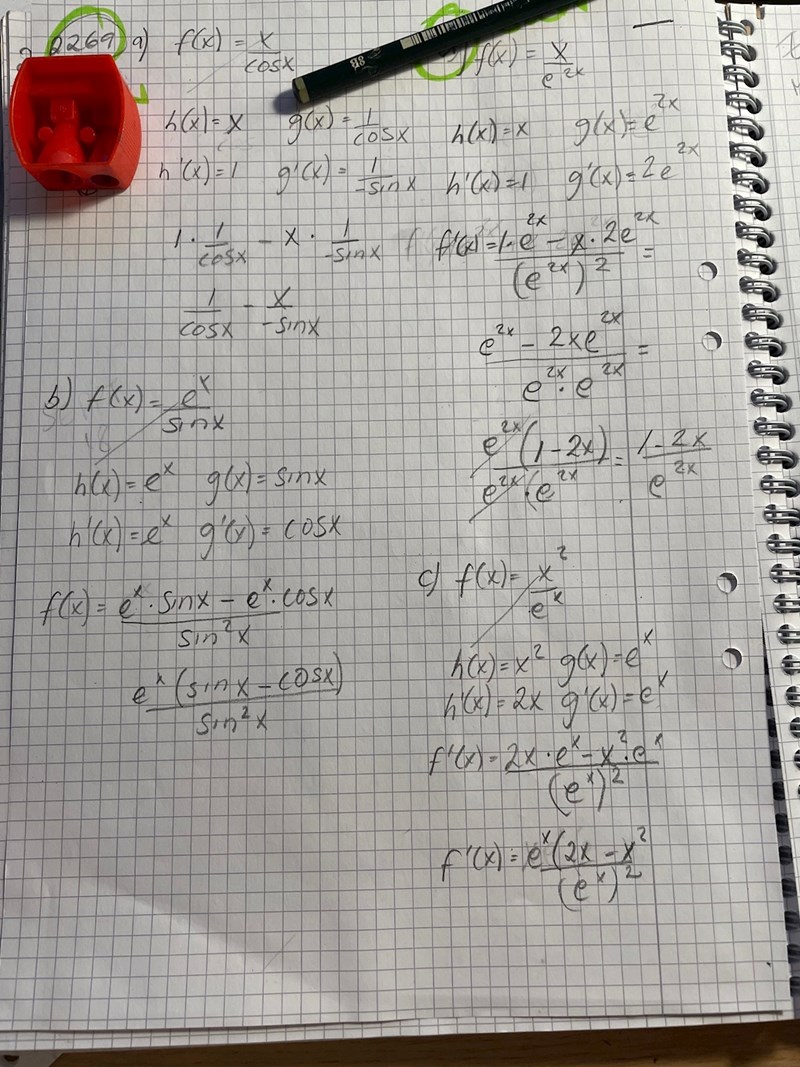 2269 a) f(x) = x/cosx
h(x) = x g(x) = 1/cosx
h'(x) = 1 g'(x) = 1/-sinx
1 · 1/cosx - x · 1/-sinx
1/cosx - x/-sinx
b) f(x) = e^x/sinx
h(x) = e^x g(x) = sinx
h'(x) = e^x g'(x) = cosx
f(x) = e^x · sinx - e^x · cosx/sin²x
e^x (sinx - cosx)/sin²x
8B
f(x) = x/e^2x
h(x) = x g(x) = e^2x
h'(x) = 1 g'(x) = 2e^2x
f'(x) = 1·e^2x - x · 2e^2x/(e^2x)² =
e^2x - 2xe^2x/e^2x · e^2x =
e^2x (1-2x)/e^2x · (e^2x = 1-2x/e^2x
c) f(x) = x²/e^x
h(x) = x² g(x) = e^x
h'(x) = 2x g'(x) = e^x
f'(x) = 2x · e^x - x² · e^x/(e^x)²
f'(x) = e^x (2x - x²/(e^x)²